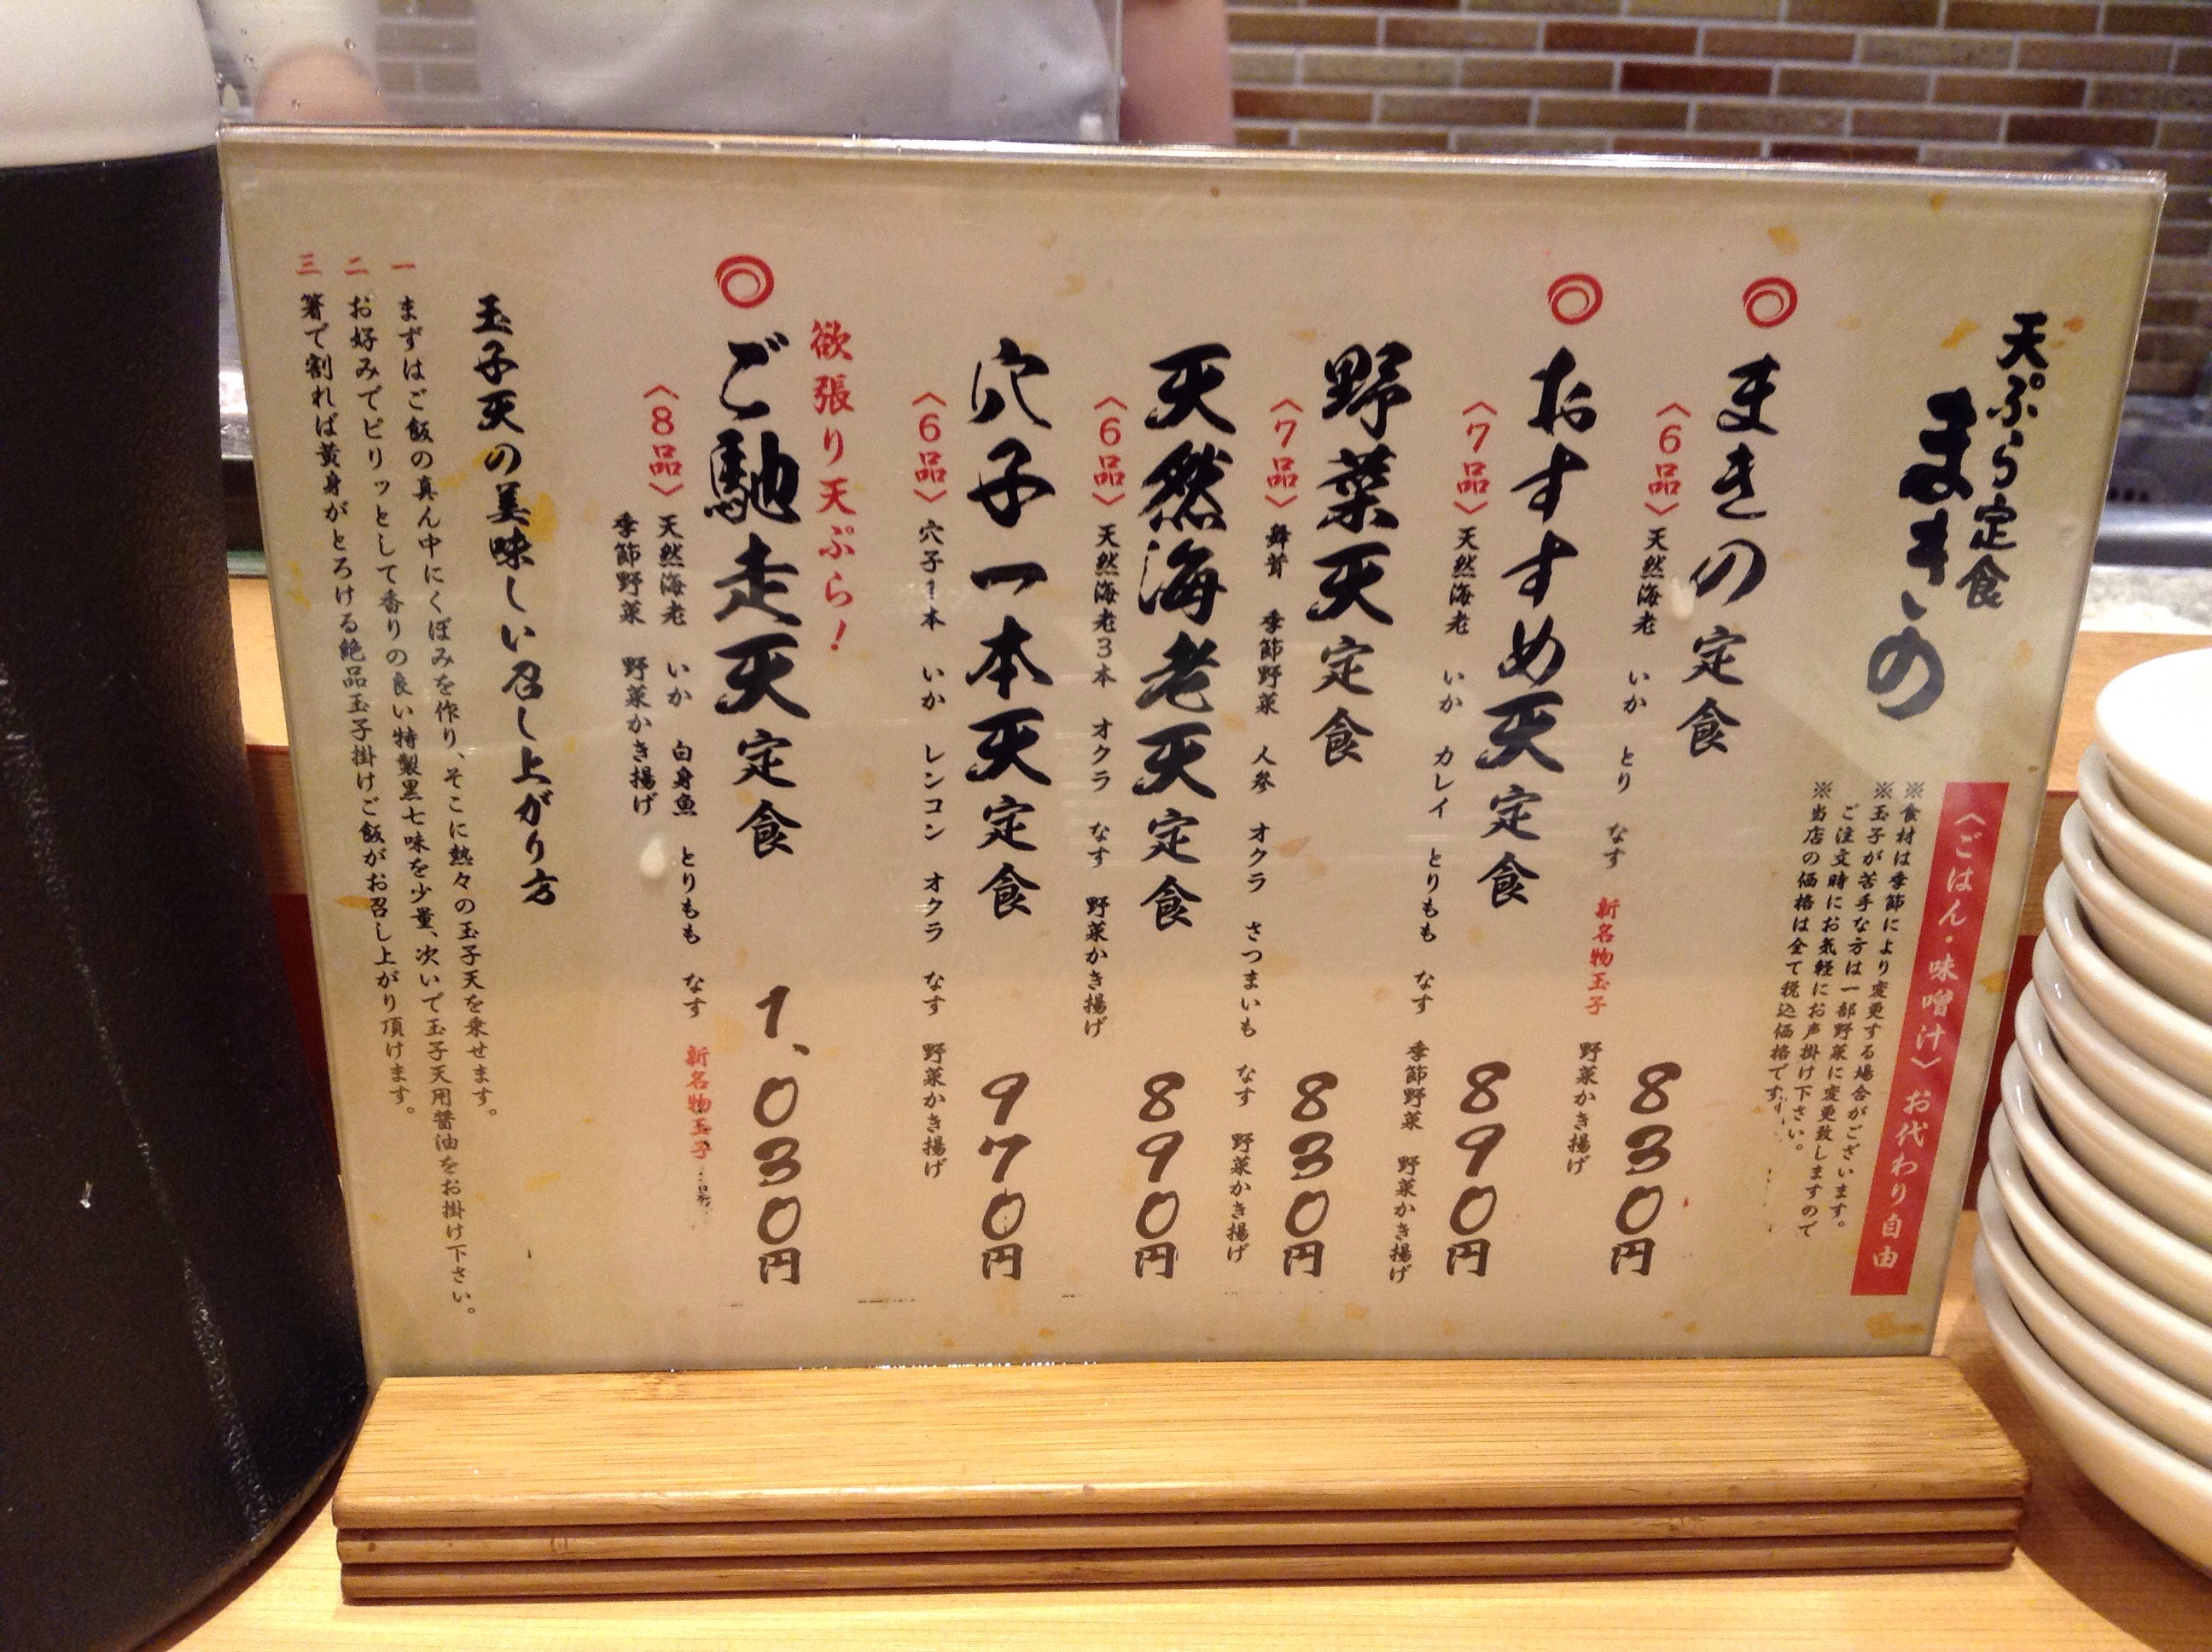 天ぷら定食
まきの
〈ごはん・味噌汁〉お代わり自由
※食材は季節により変更する場合がございます。
※玉子が苦手な方は一部野菜に変更致しますので
ご注文時にお気軽にお声掛け下さい。
※当店の価格は全て税込価格です。
まきの定食 830円
〈6品〉天然海老 いか とり なす 新名物玉子 野菜かき揚げ
おすすめ天定食 890円
〈7品〉天然海老 いか カレイ とりもも なす 季節野菜 野菜かき揚げ
野菜天定食 830円
〈7品〉舞茸 季節野菜 人参 オクラ さつまいも なす 野菜かき揚げ
天然海老天定食 890円
〈6品〉天然海老3本 オクラ なす 野菜かき揚げ
穴子一本天定食 970円
〈6品〉穴子1本 いか レンコン オクラ なす 野菜かき揚げ
欲張り天ぷら！
ご馳走天定食 1,030円
〈8品〉天然海老 いか 白身魚 とりもも なす 新名物玉子
季節野菜 野菜かき揚げ
玉子天の美味しい召し上がり方
一 まずはご飯の真ん中にくぼみを作り、そこに熱々の玉子天を乗せます。
二 お好みでピリッとして香りの良い特製黒七味を少量、次いで玉子天用醤油をお掛け下さい。
三 箸で割れば黄身がとろける絶品玉子掛けご飯がお召し上がり頂けます。